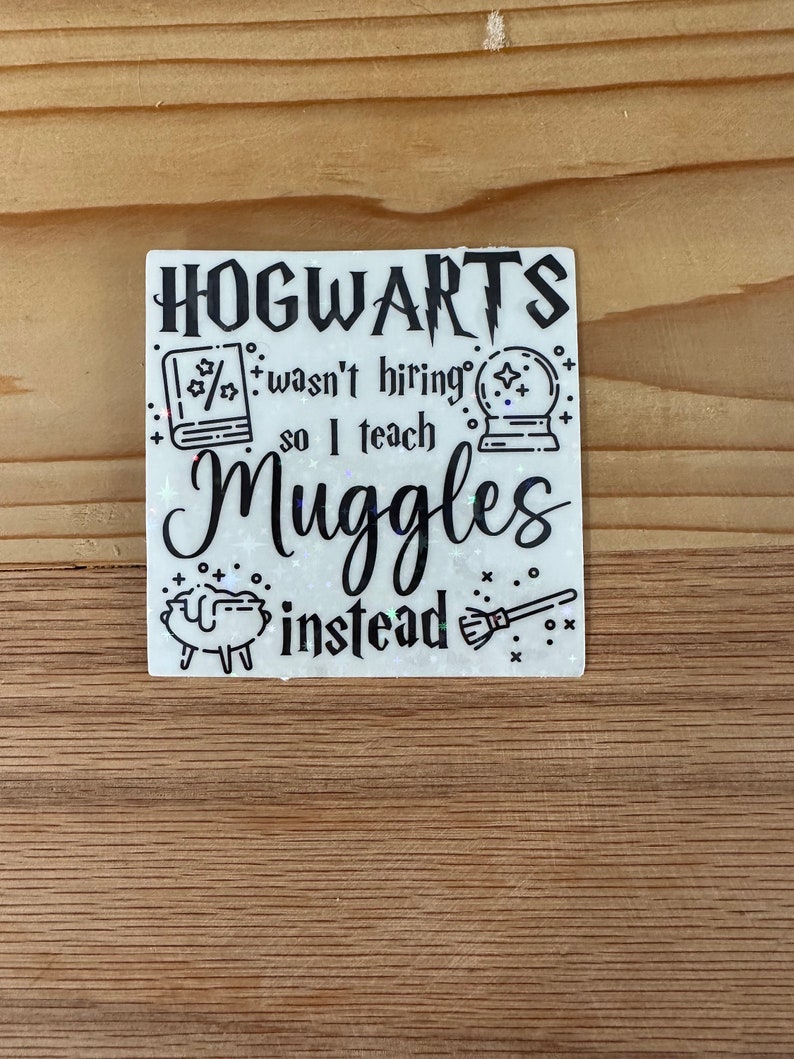 HOGWARTS
wasn't hiring
so I teach
Muggles
instead